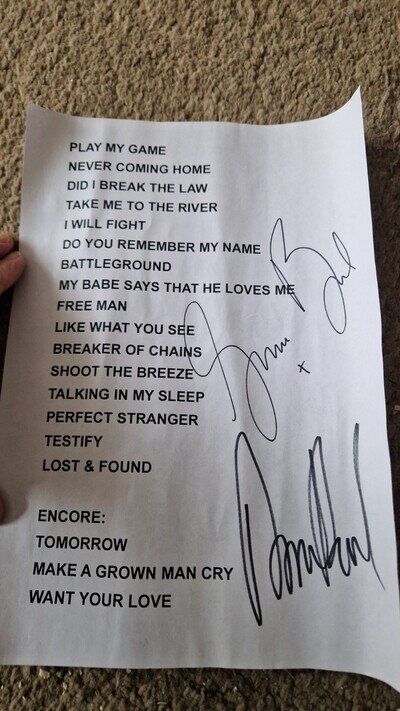 PLAY MY GAME
NEVER COMING HOME
DID I BREAK THE LAW
TAKE ME TO THE RIVER
I WILL FIGHT
DO YOU REMEMBER MY NAME
BATTLEGROUND
MY BABE SAYS THAT HE LOVES ME
FREE MAN
LIKE WHAT YOU SEE
BREAKER OF CHAINS
SHOOT THE BREEZE
TALKING IN MY SLEEP
PERFECT STRANGER
TESTIFY
LOST & FOUND
ENCORE:
TOMORROW
MAKE A GROWN MAN CRY
WANT YOUR LOVE